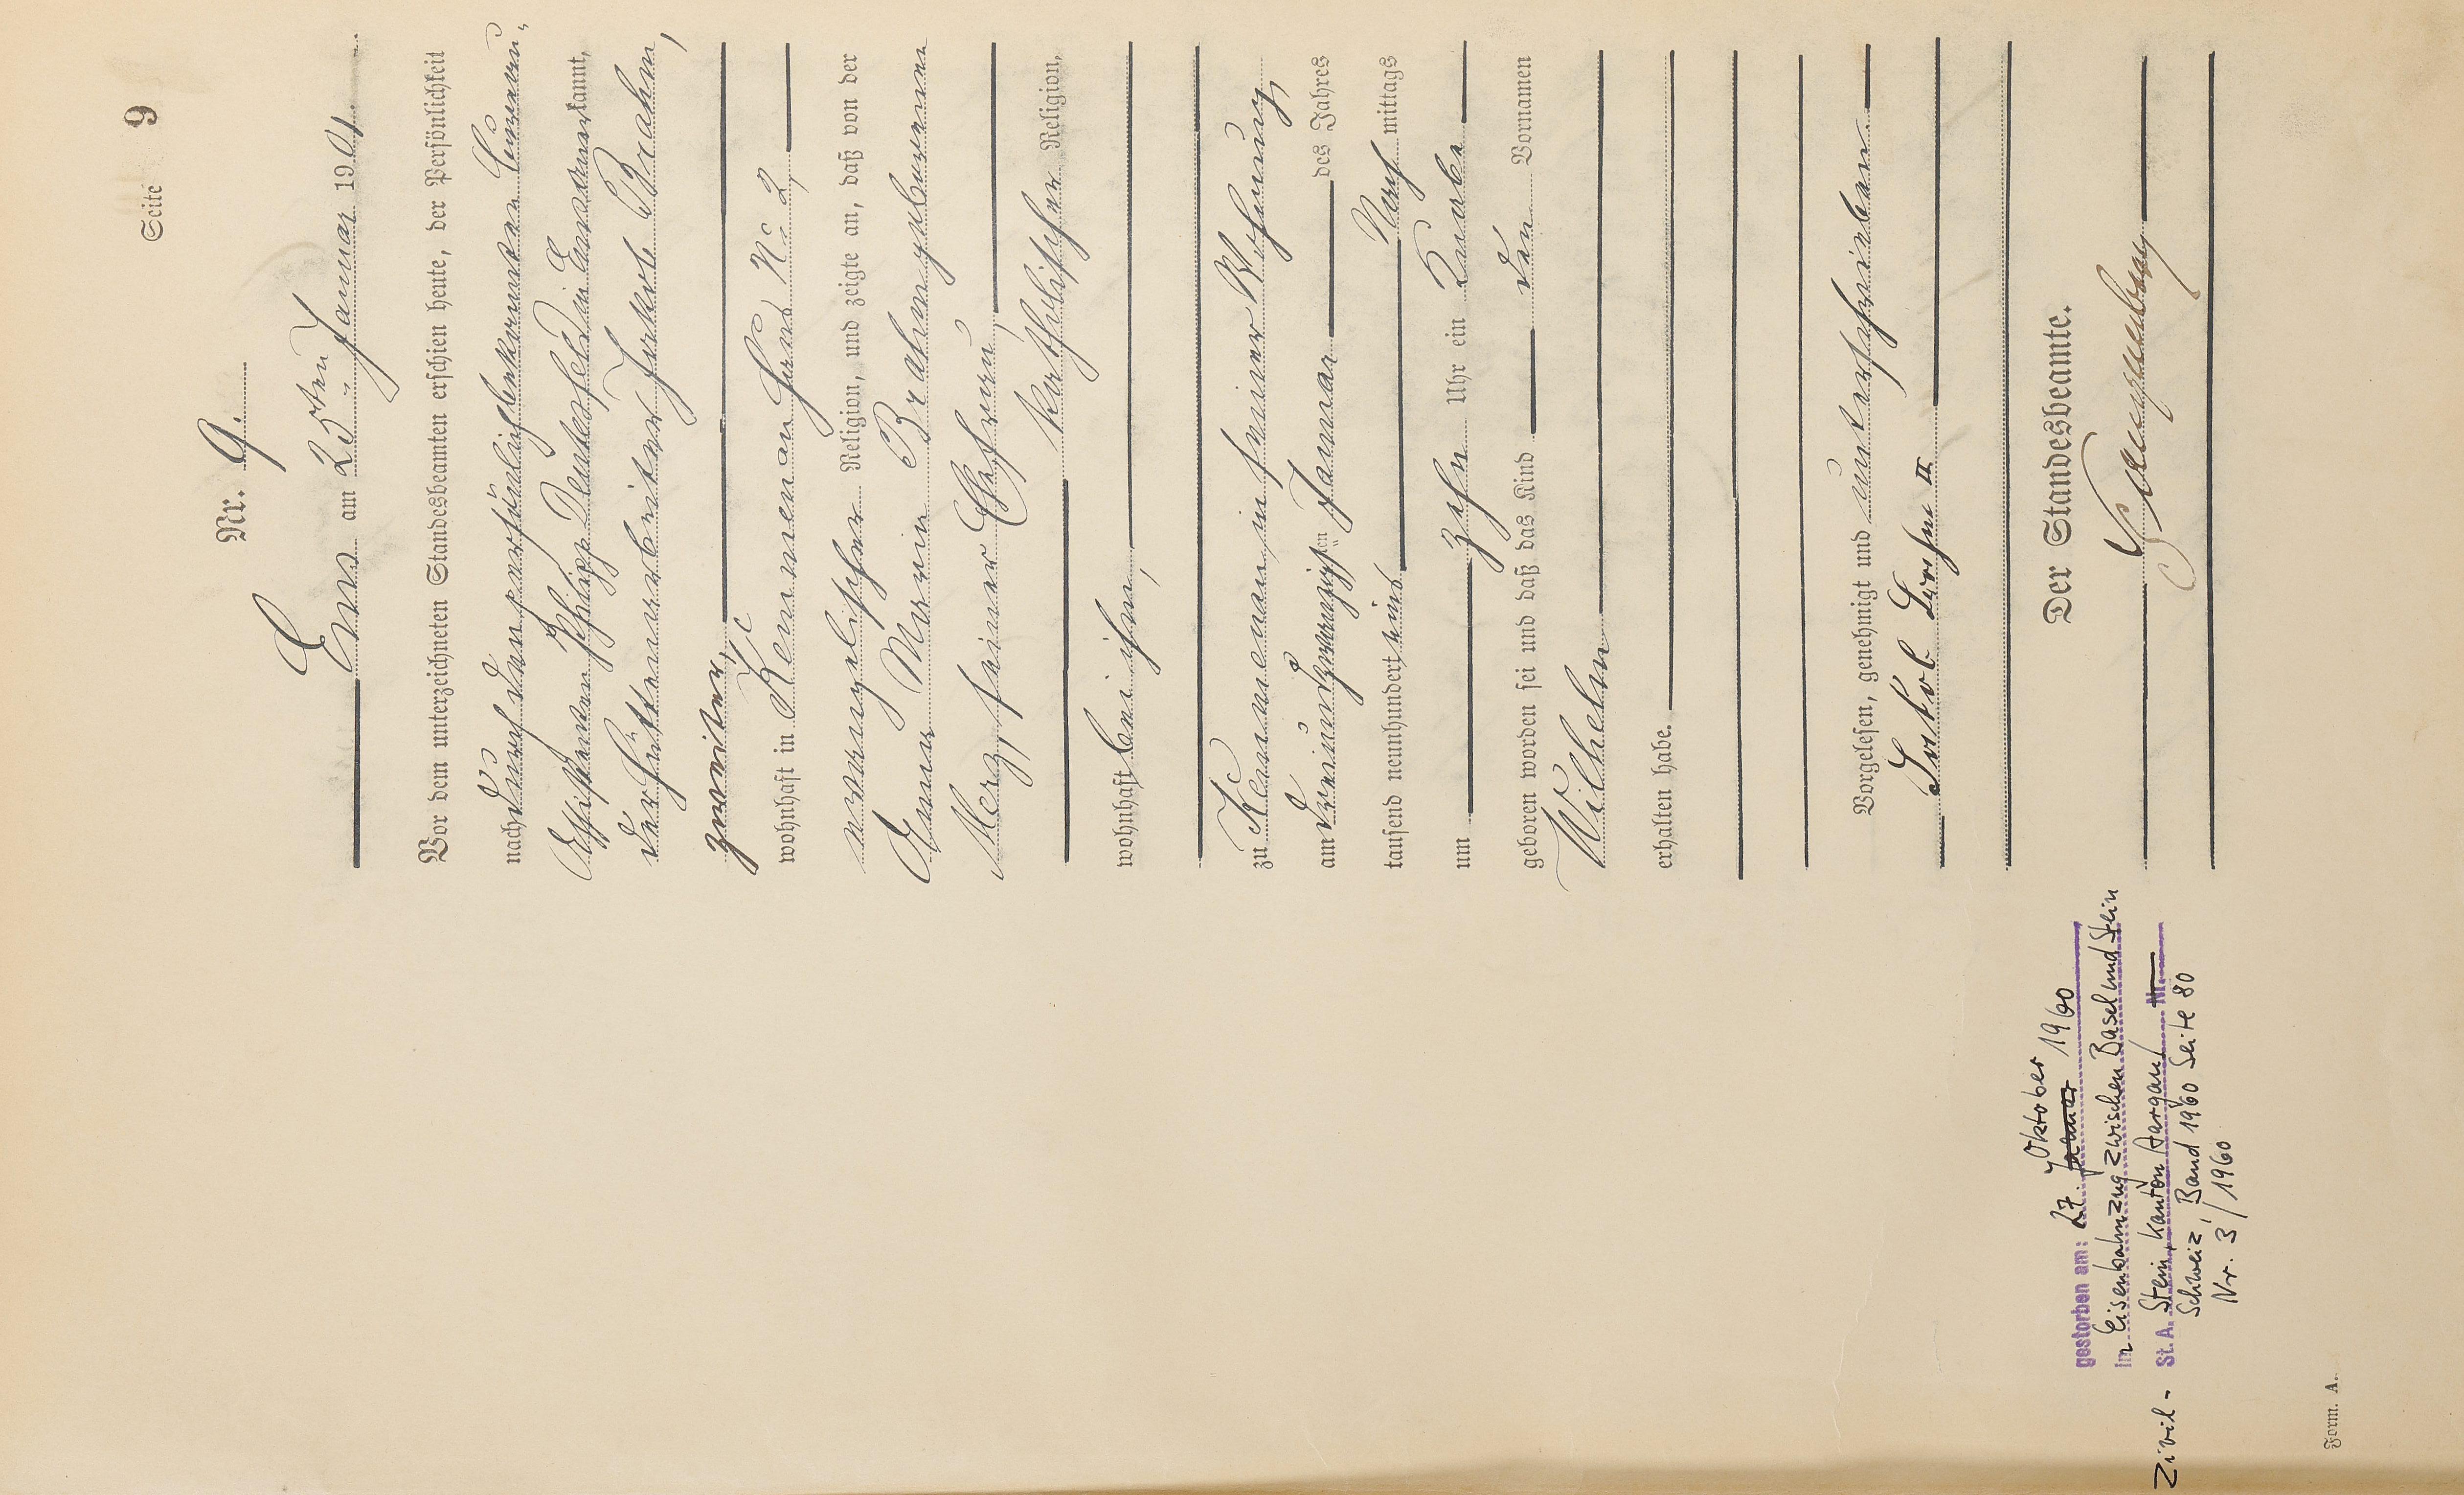 Seite 9
Nr. 9.
Ems am 25ten Januar 1901.
Vor dem unterzeichneten Standesbeamten erschien heute, der Persönlichkeit
nach durch den persönlich bekannten Bureau-
Assistenten Philipp Deutesfeld in Ems anerkannt,
der Hüttenarbeiter Jakob Brahm,
zweiter,
wohnhaft in Kemmenau Haus No 2,
evangelischer Religion, und zeigte an, daß von der
Anna Maria Brahm geborenen
Merz, seiner Ehefrau,
katholischer Religion,
wohnhaft bei ihm,
zu Kemmenau in seiner Wohnung,
am dreiundzwanzigsten Januar des Jahres
tausend neunhundert eins Nach mittags
um zehn Uhr ein Knabe
geboren worden sei und daß das Kind den Vornamen
Wilhelm
erhalten habe.
Vorgelesen, genehmigt und unterschrieben.
Jakob II
Der Standesbeamte.
gestorben am: 27. Januar Oktober 1960
im Eisenbahnzug zwischen Basel und Stein
Zivil- St.A. Stein, Kanton Aargau/ Nr.
Schweiz, Band 1960 Seite 80
Nr. 3/1960
Form. A.